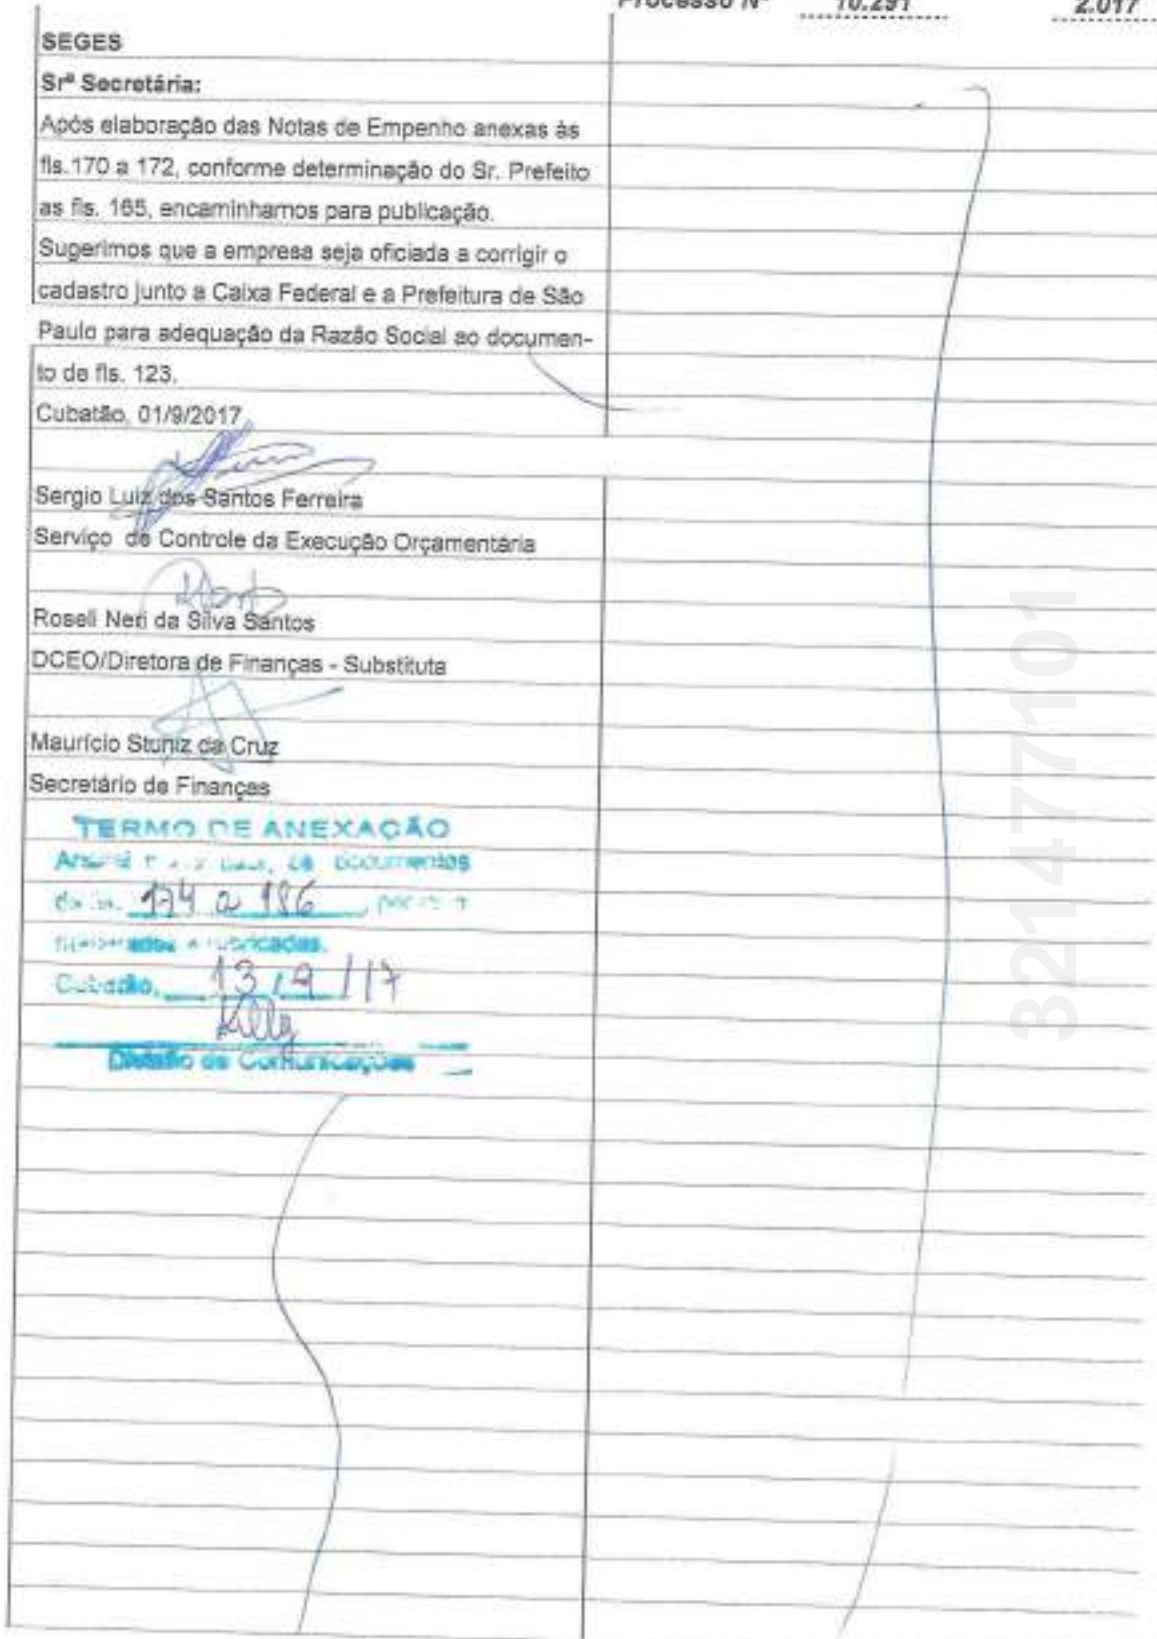 Processo Nº 10.291 2.017
SEGES
Srª Secretária:
Após elaboração das Notas de Empenho anexas às
fls.170 a 172, conforme determinação do Sr. Prefeito
as fls. 165, encaminhamos para publicação.
Sugerimos que a empresa seja oficiada a corrigir o
cadastro junto a Caixa Federal e a Prefeitura de São
Paulo para adequação da Razão Social ao documen-
to de fls. 123.
Cubatão, 01/9/2017
Sergio Luiz dos Santos Ferreira
Serviço de Controle da Execução Orçamentária
Roseli Neri da Silva Santos
DCEO/Diretora de Finanças - Substituta
Maurício Stuniz da Cruz
Secretário de Finanças
TERMO DE ANEXAÇÃO
documentos
174 a 186
rubricadas.
Cubatão, 13 / 9 / 17
Divisão de Comunicações
3214777101